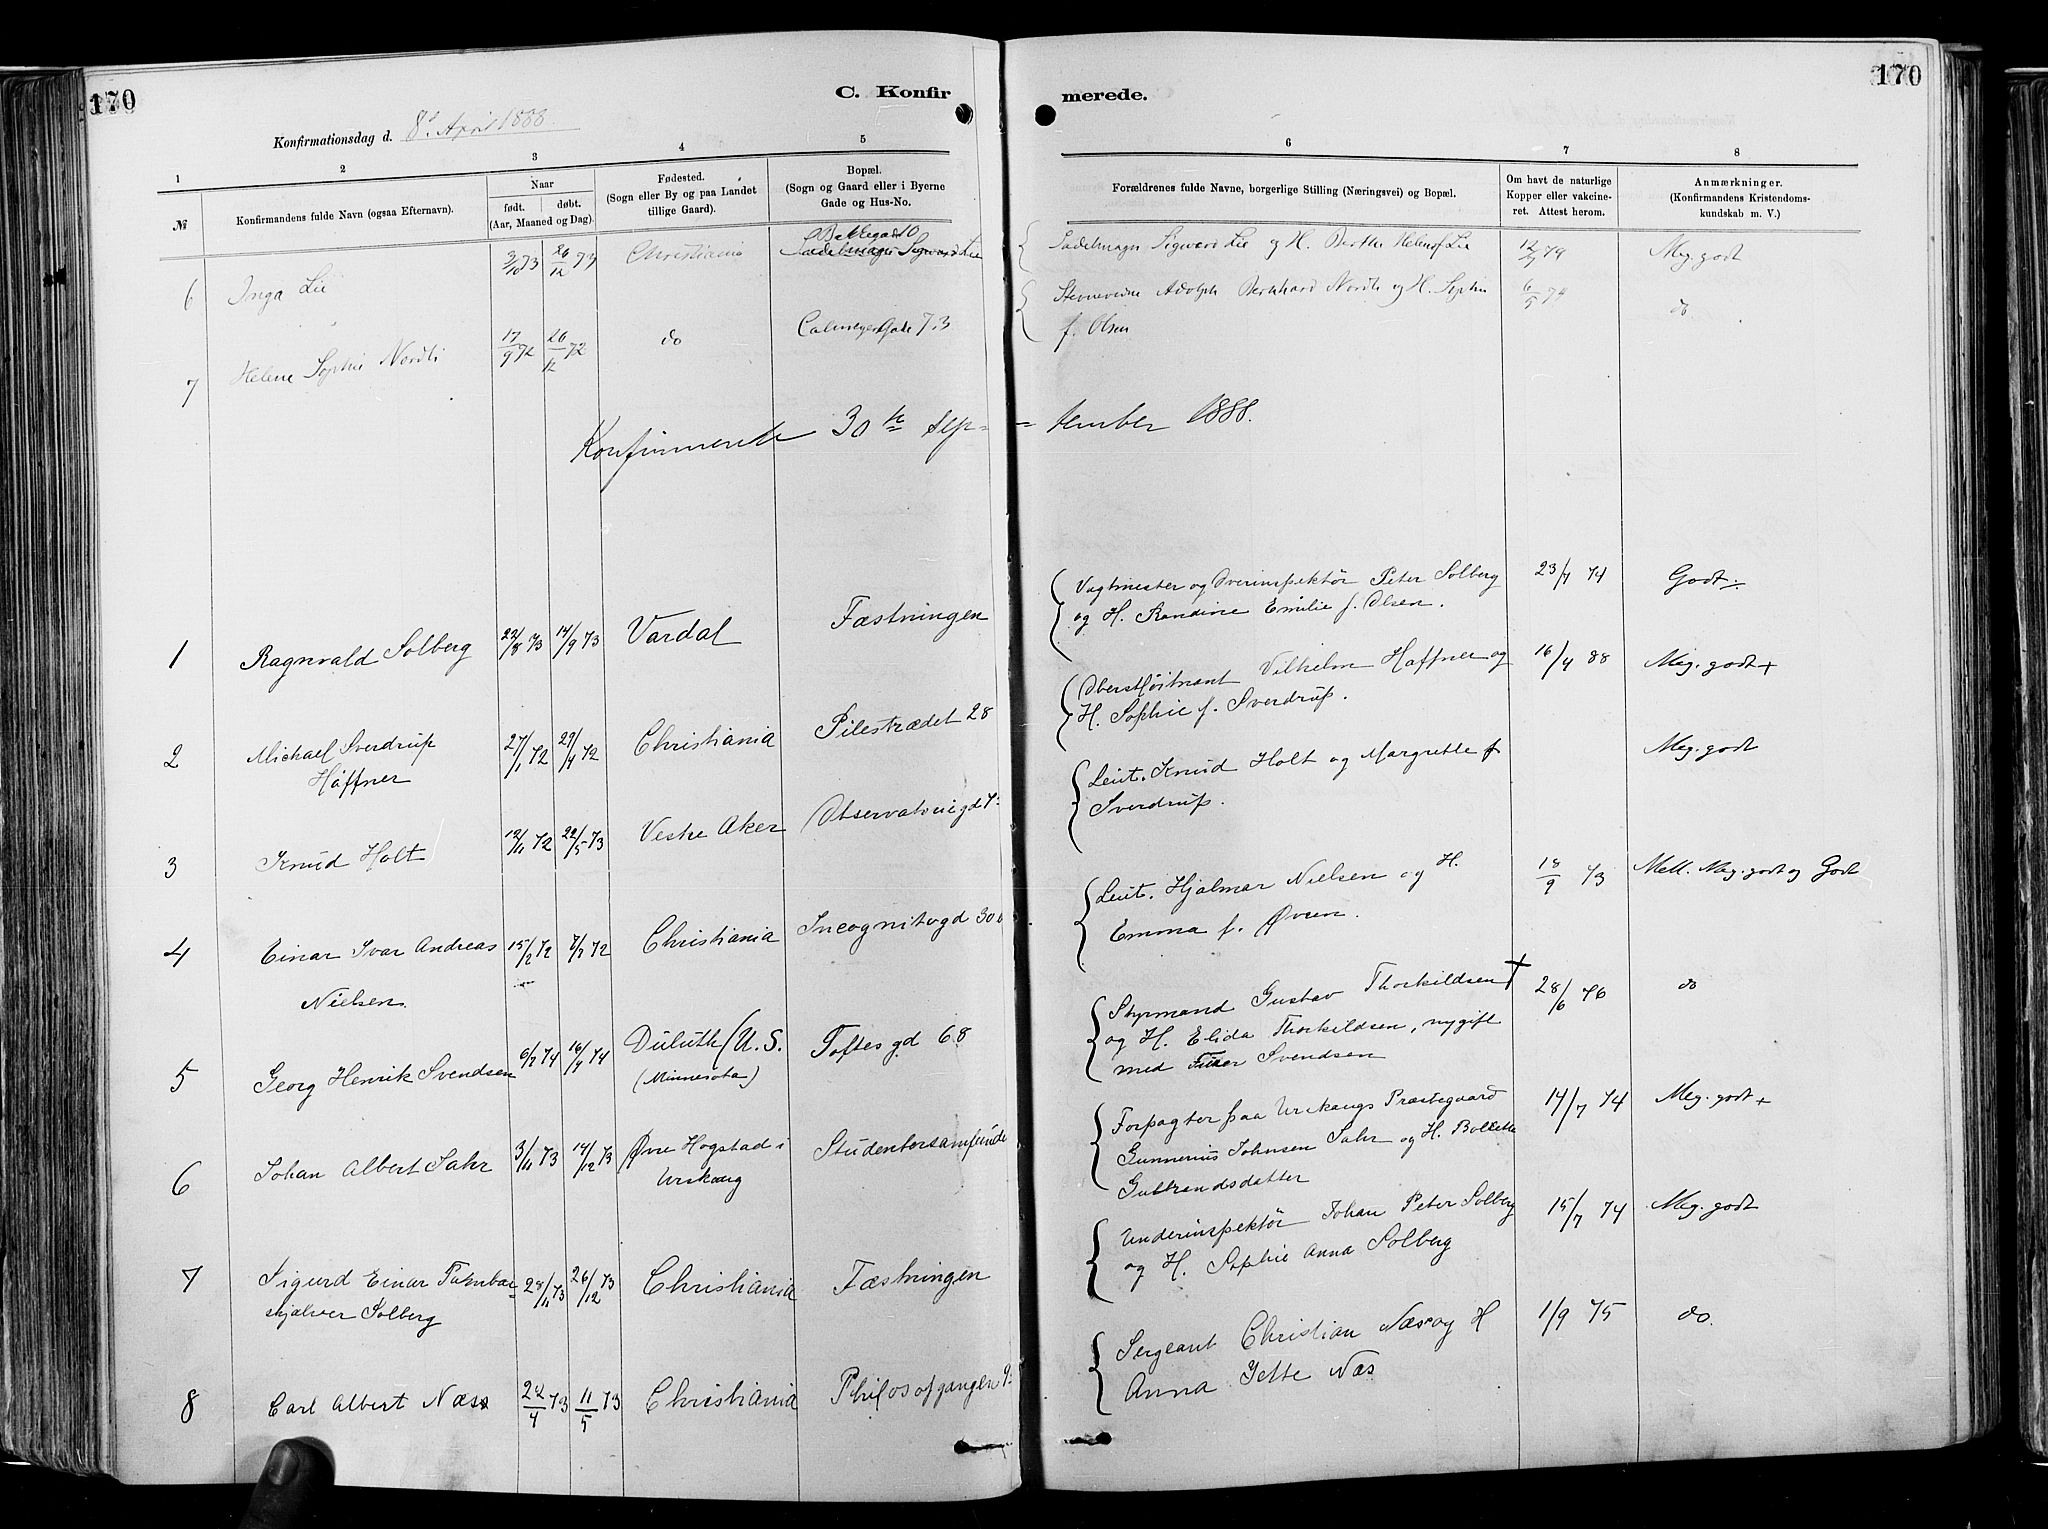 170
C. Konfirmerede.
170
Konfirmationsdag d. 8de April 1888
1 2 3 4 5 6 7 8
№
Konfirmandens fulde Navn (ogsaa Efternavn).
Naar
født. døbt.
(Aar, Maaned og Dag).
Fødested.
(Sogn eller By og paa Landet
tillige Gaard).
Bopæl.
(Sogn og Gaard eller i Byerne
Gade og Hus-No.
Forældrenes fulde Navne, borgerlige Stilling (Næringsvei) og Bopæl.
Om havt de naturlige
Kopper eller vakcine-
ret. Attest herom.
Anmærkninger.
(Konfirmandens Kristendoms-
kundskab m. V.)
6 Inga Lie 3/10 73 26/12 73 Christiania Bakkegad 10
Sadelmager Sigvard Lie
Sadelmager Sigward Lie og H. Berthe Helene f. Lie 12/7 79 Meg. godt
7 Helene Sophie Nordli 17/9 72 26/12 72 do Calmeyers Gade 7.3
Stevnevidne Adolph Bernhard Nordli og H. Sophie 6/5 74 do
f. Olsen
Konfirmerede 30te Sep-
tember 1888.
1 Ragnvald Solberg 22/8 73 14/9 73 Vardal Fæstningen
Vagtmester og Overinspektør Peter Solberg 23/7 74 Godt
og H. Randine Emilie f. Olsen.
2 Michael Sverdrup 27/1 72 29/4 72 Christiania Pilestrædet 28
Haffner
Oberstløitnant Vilhelm Haffner og 16/4 88 Meg. godt +
H. Sophie f. Sverdrup.
3 Knud Holt 12/11 72 22/5 73 Vestre Aker Observatoriegd 7
Leut. Knud Holt og Margrethe f Meg. godt
Sverdrup.
4 Einar Ivar Andreas 15/2 72 7/7 72 Christiania Incognitogd 30b
Nielsen.
Leut. Hjalmar Nielsen og H. 18/9 73 Mell. Meg. godt og Godt
Emma f. Øvren.
5 Georg Henrik Svendsen 6/2 74 16/4 74 Duluth (U.S. Toftes gd 68
(Minnesota)
Styrmand Gustav Thorkildsen † 28/6 76 do
og H. Elida Thorkildsen, nygift
med Svendsen
6 Johan Albert Sahr 3/11 73 14/12 73 Øvre Hogstad i Studentersamfunde
Urskoug
Forpagter paa Urskougs Præstegaard 14/7 74 Meg. godt +
Gunnerius Johnsen Sahr og H. Bollette
Gulbrandsdatter
7 Sigurd Einar Tambar- 28/11 73 26/12 73 Christiania Fæstningen
skjælver Solberg
Underinspektør Johan Peter Solberg 15/7 74 Meg. godt
og H. Sophie Anna Solberg
8 Carl Albert Næss 24/4 73 11/5 73 Christiania Philosofgangen 9
Sergeant Christian Næs og H 1/9 75 do.
Anna Jette Næs